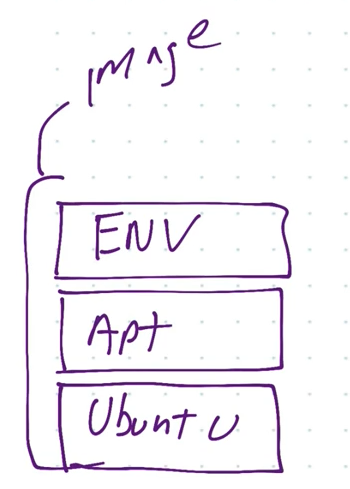 image
ENV
Apt
Ubuntu